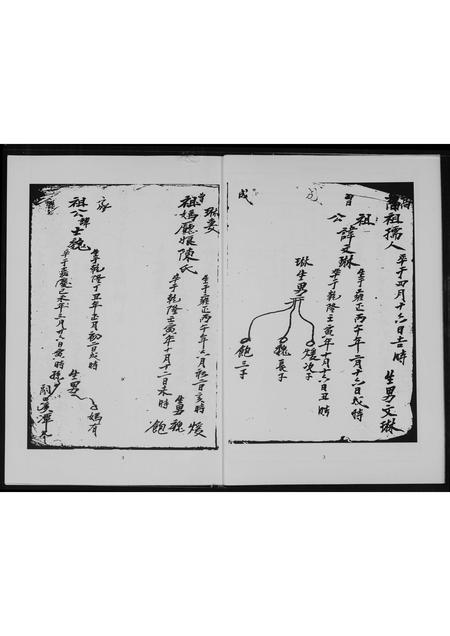 祖孺人
卒于四月十六日吉時
生男文琳
曾
祖
公
諱文琳
生于雍正丙午年二月十六日戌時
卒于乾隆壬寅年十月十六日丑時
琳生男
煖次子
魏長子
飽三子
琳妻
祖媽
陳氏
生于雍正丙午年六月初二日亥時
卒于乾隆壬寅年十月十二日未時
生男
煖
魏
飽
祖公諱士魏
生于乾隆丁丑年五月初二日戌時
卒于嘉慶己未年三月十六日寅時
生男
媽有
3
3